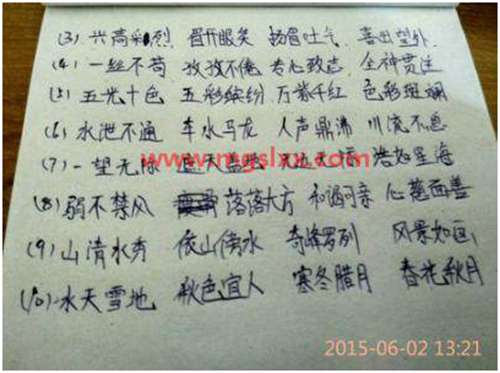 (3) 兴高彩烈 眉开眼笑 扬眉吐气 喜出望外
(4) 一丝不苟 孜孜不倦 专心致志 全神贯注
(5) 五光十色 五彩缤纷 万紫千红 色彩斑斓
(6) 水泄不通 车水马龙 人声鼎沸 川流不息
www.mgslxx.com
(7) 一望无际 浩如星海
(8) 弱不禁风 落落大方 和蔼可亲 心慈面善
(9) 山清水秀 依山傍水 奇峰罗列 风景如画
(10) 水天雪地 秋色宜人 寒冬腊月 春花秋月
2015-06-02 13:21